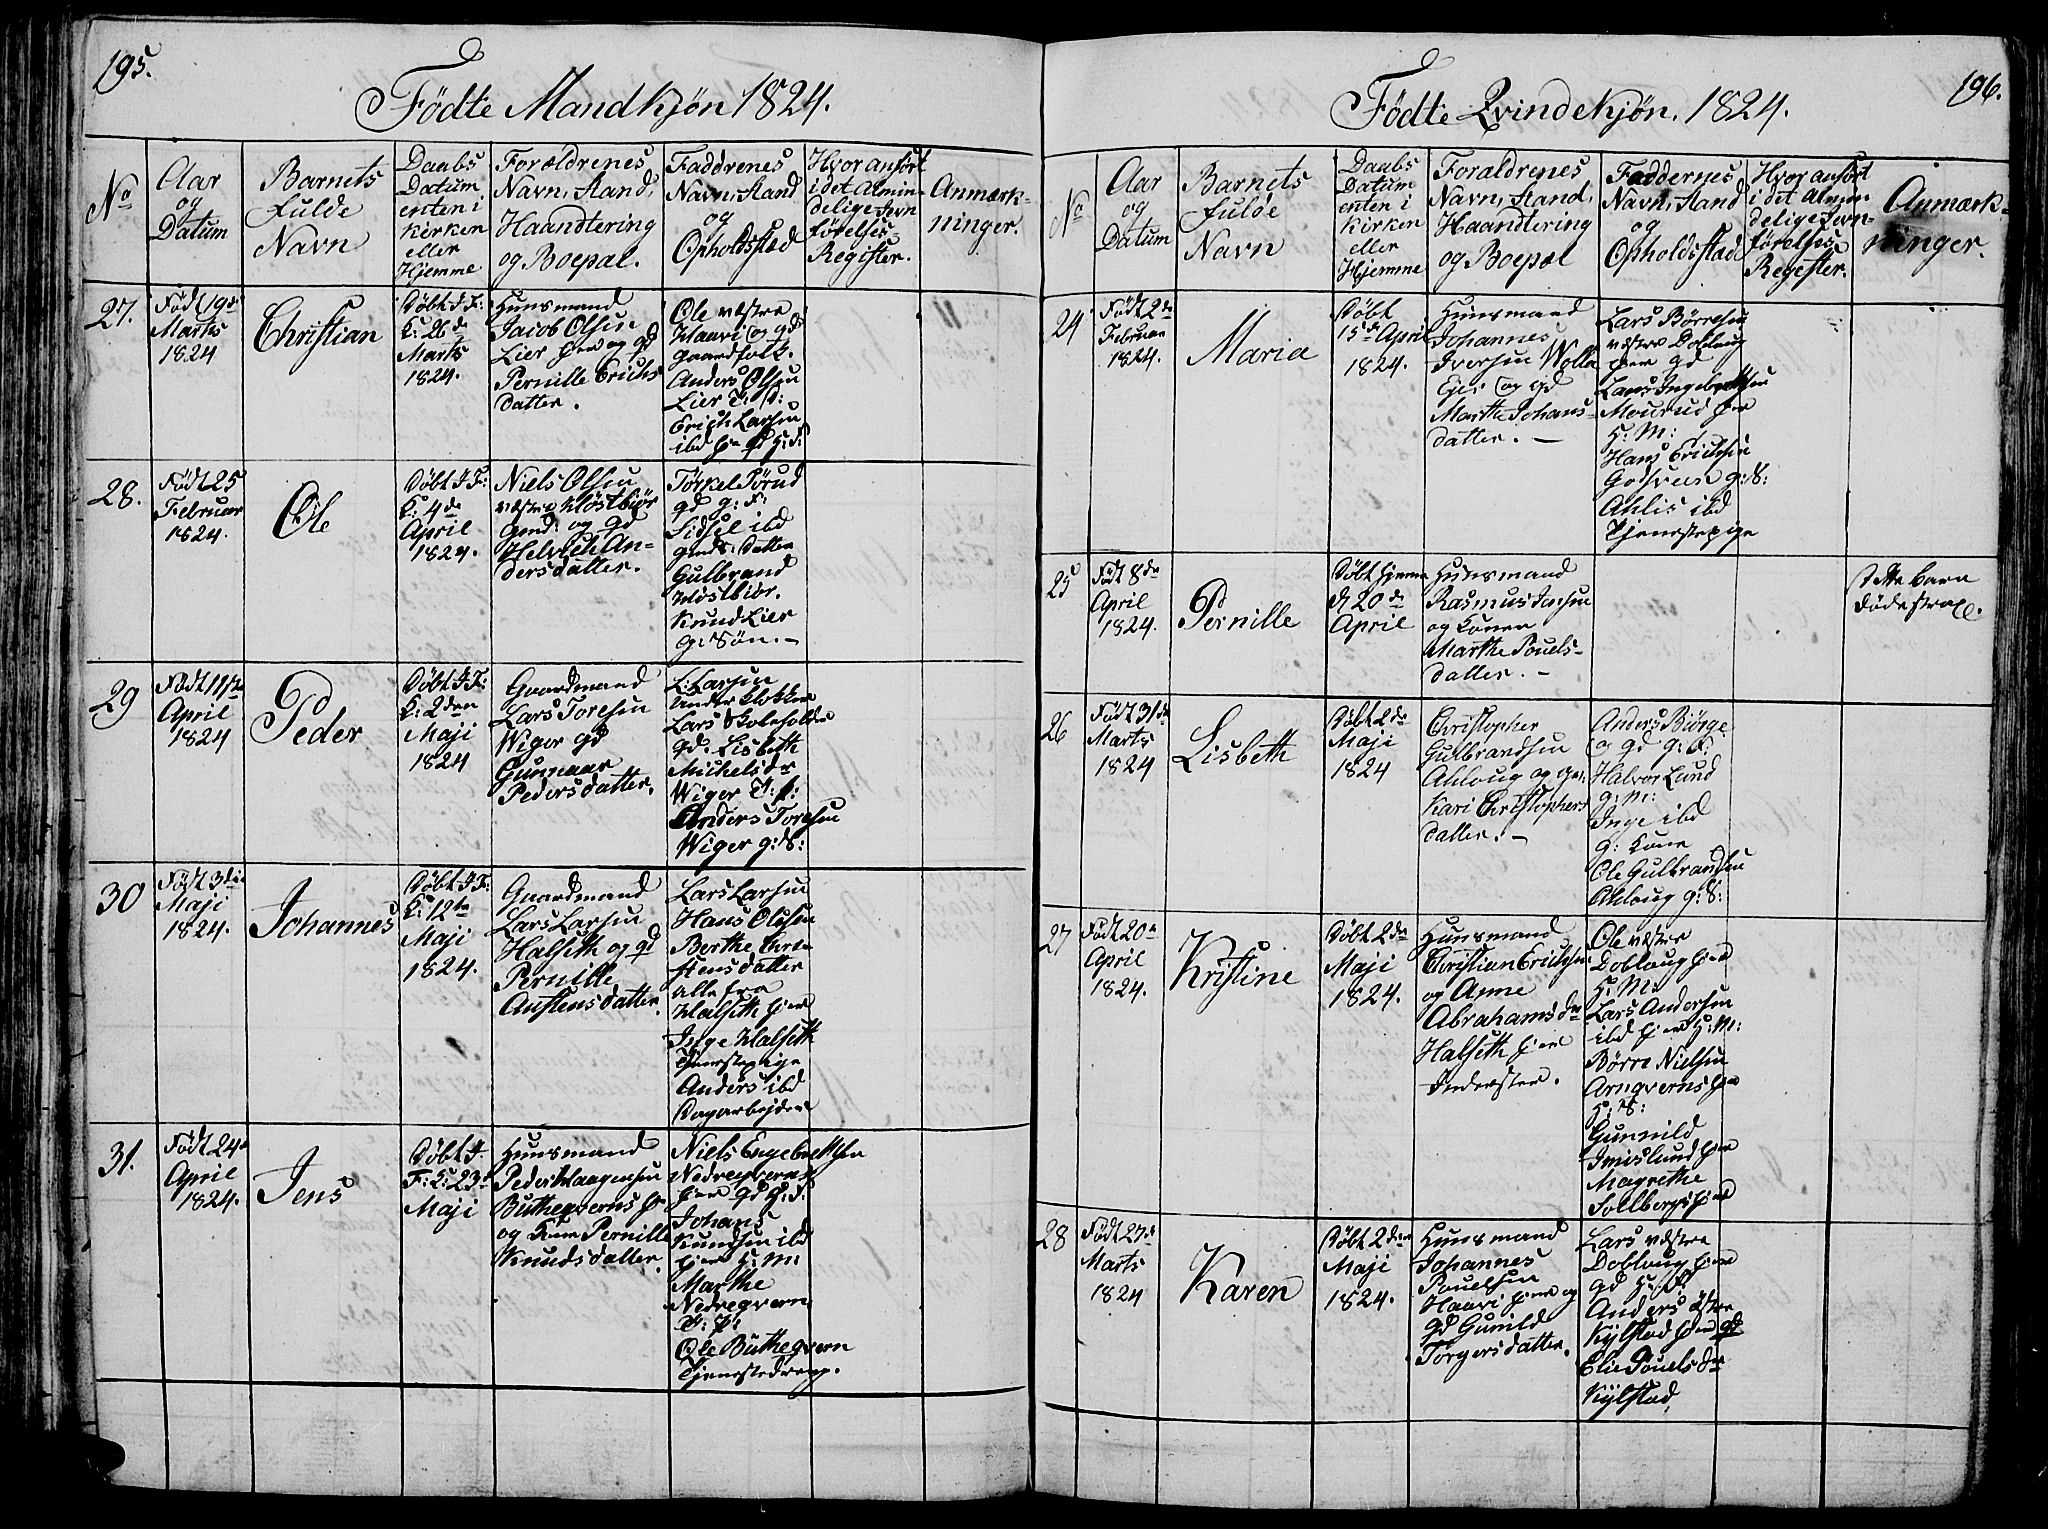 195.
Fødte Mandkjøn 1824.
No
Aar
og
Datum
Barnets
fulde
Navn
Daabs
Datum
enten i
Kirken
eller
Hjemme
Forældrenes
Navn, Stand,
Haandtering
og Boepæl.
Faddrenes
Navn, Stand
og
Opholdsstæd
Hvor anført
i det Almin-
delige Jevn
førelses-
Register.
Anmærk-
ninger.
27.
Født 19de
Marts
1824
Christian
Døbt I F:
K: 26de
Marts
1824.
Huusmand
Jacob Olsen
Lier
Pernille Erichs
datter.
Ole vestre
Haavi og
gaardfolk.
Anders Olsen
Lier
Erich Larsen
ibd
28.
Født 25
Februar
1824.
Ole
Døbt I F:
K: 4de
April
1824.
Niels Olsen
vestre Høstbiør
Gmd: og
Helvich An-
dersdatter.
Tørkel Sørud
Sidsel ibd
datter
Gulbrand
Høstbiør.
Knud Lier
g: Søn.-
29
Født 11te
April
1824
Peder
Døbt I F:
K: 2den
Maji
1824
Gaardmand
Lars Toresen
Wiger
Gunnaar
Pedersdatter.
L: Larsen
under Klokker
Lars Skoleholder
Lisbeth
Michelsdr
Wiger
Anders Toresen
Wiger g: S:
30
Født 3die
Maji
1824.
Johannes
Døbt I F:
K: 12te
Maji
1824.
Gaardmand
Lars Larsen
Halseth og
Pernille
Austensdatter.
Lars Larsen
Hans Olsen
Berthe
stensdatter
alle fra
Halseth
Inge Halseth
Tjenestepige
Anders ibd
Dagarbejder
31.
Født 24de
April
1824.
Jens
Døbt I
F: K: 23de
Maji
Huusmand
Peder Haagensen
Buthegvern
og Kone Pernille
Knudsdatter.
Niels Engebretsen
Nedregvern
Johans
Knudsen ibd
H: M:
Marthe
Nedregvern
Ole Buthegvern
Tjenestedreng.
196.
Fødte Qvindekjøn. 1824.
No
Aar
og
Datum
Barnets
fulde
Navn
Daabs
Datum
enten i
Kirken
eller
Hjemme
Foraldrenes
Navn, Stand,
Haandtering
og Boepæl
Faddernes
Navn, Stand
og
Opholdsstad
Hvor anført
i det Almin
delige Jevn-
førelses
Regester.
Anmærk-
ninger.
24
Født 2de
Februar
1824.
Maria
Døbt
15de April
1824.
Huusmand
Johannes
Iversen Wolla
Eje: og
Marthe Johans-
datter. -
Lars Børresen
vestre Doblaug
Lars Ingebretsen
Mourud
H: M:
Hans Erichsen
Godsveen g: S:
Ahlis ibd
Tjenestepige
25
Født 8de
April
1824.
Pernille
Døbt hjemme
d 20de
April
Huusmand
Rasmus Jensen
og Konen
Marthe Pouels-
datter. -
dette barn
døde strax.
26
Født 31de
Marts
1824
Lisbeth
Døbt 2de
Maji
1824
Christopher
Gulbrandsen
Ahloug og
Kari Christophers
datter. -
Anders Børge
og
Halvor Lund
g: M:
Inge ibd
g: Kone
Ole Gulbrandsen
Ahloug g: S:
27
Født 20de
April
1824.
Kristine
Døbt 2den
Maji
1824.
Huusmand
Christian Erichsen
og Anne
Abrahamsdr
Halseth
Inderster.
Ole vestre
Doblaug
H: M:
Lars Andersen
ibd H: M:
Børre Nielsen
Arnqverns
H: S:
Gunnild
Imislund
Magrethe
Sollberg
28
Født 27de
Marts
1824
Karen
Døbt 2den
Maji
1824.
Huusmand
Johannes
Pouelsen
Haavi og
Gunild
Torgersdatter.
Lars vestre
Doblaug
Anders østre
Kylstad
Elie Pouelsdr
Kylstad.